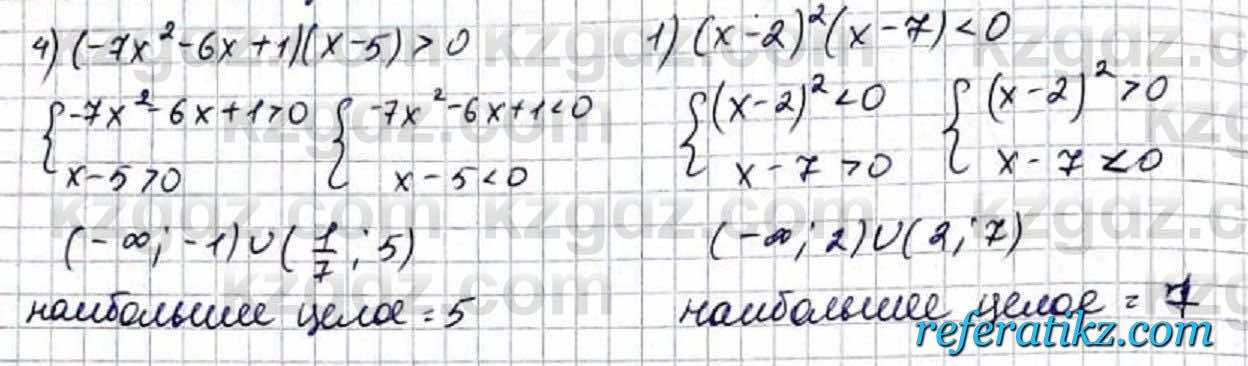 4) (-7x²-6x+1)(x-5)>0
{-7x²-6x+1>0 {-7x²-6x+1<0
x-5>0 x-5<0
(-∞; -1)∪(1/7; 5)
наибольшее целое = 5
1) (x-2)²(x-7)<0
{(x-2)²<0 {(x-2)²>0
x-7>0 x-7<0
(-∞; 2)∪(2; 7)
наибольшее целое = 7
kzgdz.com
referatikz.com